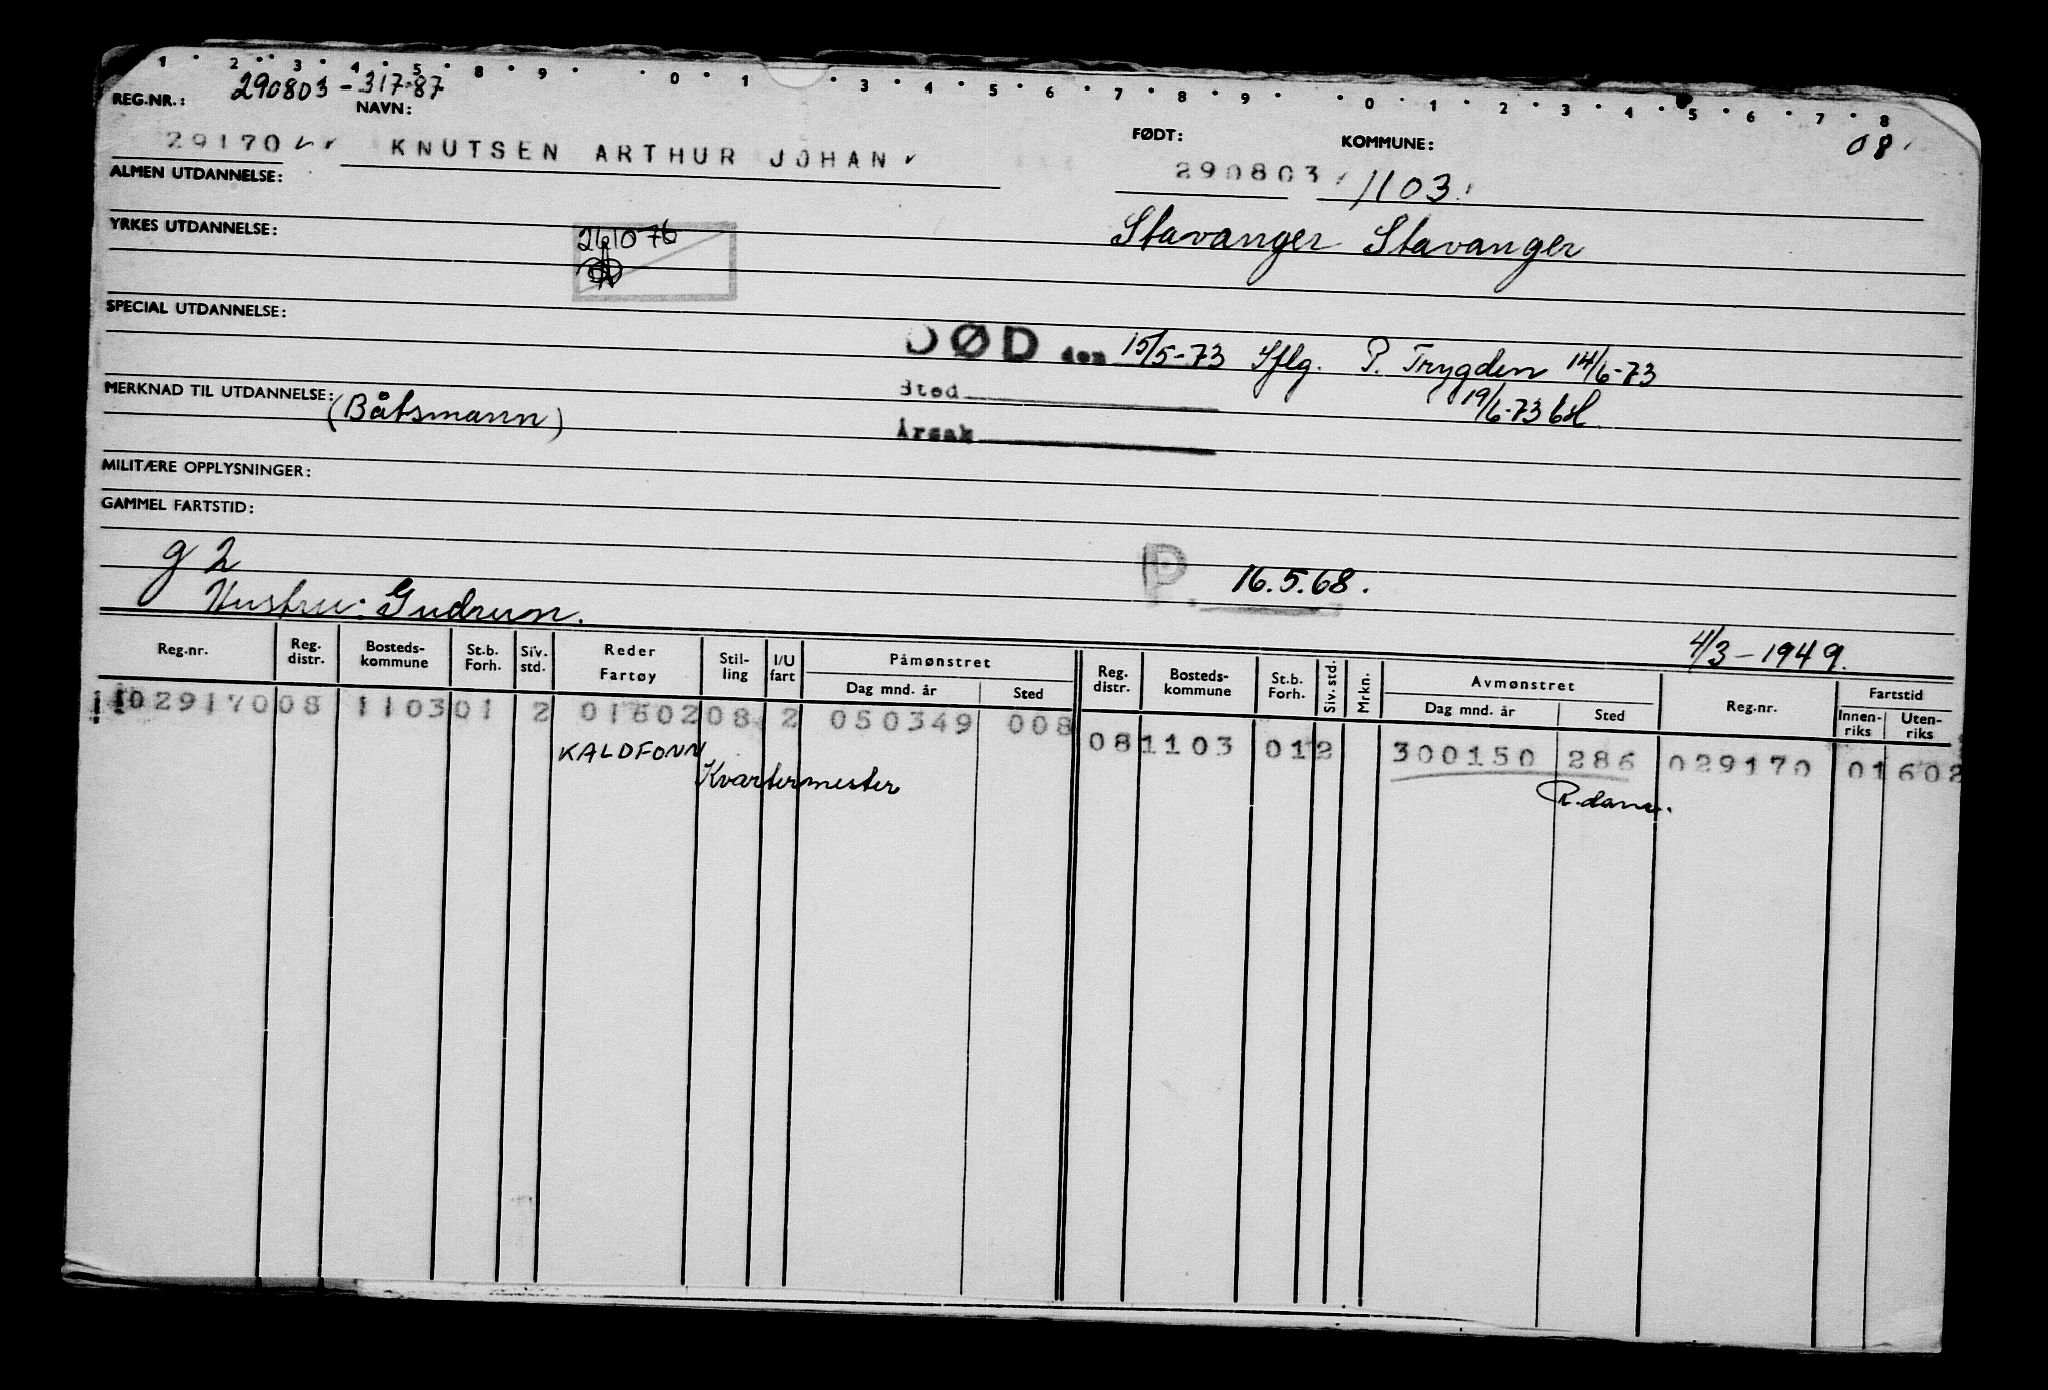 1 2 3 4 5 8 9 0 1 3 4 5 6 7 8 9 0 1 2 3 4 5 6 7 8
290803 - 317·87
REG.NR.: NAVN: FØDT: KOMMUNE: 08
29170 KNUTSEN ARTHUR JOHAN 290803 1103
ALMEN UTDANNELSE:
Stavanger Stavanger
YRKES UTDANNELSE: 261076
SPECIAL UTDANNELSE:
DØD den 15/5-73 Iflg. P. Trygden 14/6-73
MERKNAD TIL UTDANNELSE: (Båtsmann) Sted 19/6-73
Årsak
MILITÆRE OPPLYSNINGER:
GAMMEL FARTSTID:
g 2 P. 16.5.68.
Hustru: Gudrun.
4/3-1949.
Reg.nr. Reg. distr. Bosteds-kommune St.b. Forh. Siv. std. Reder Fartøy Stil-ling I/U fart Påmønstret Dag mnd. år Sted Reg. distr. Bosteds-kommune St.b. Forh. Siv. std. Mrkn. Avmønstret Dag mnd. år Sted Reg.nr. Fartstid Innen-riks Uten-riks
029170 08 1103 01 2 01602 08 2 050349 008 08 1103 01 2 300150 286 029170 01 602
KALDFONN Kvartermester R.dam.